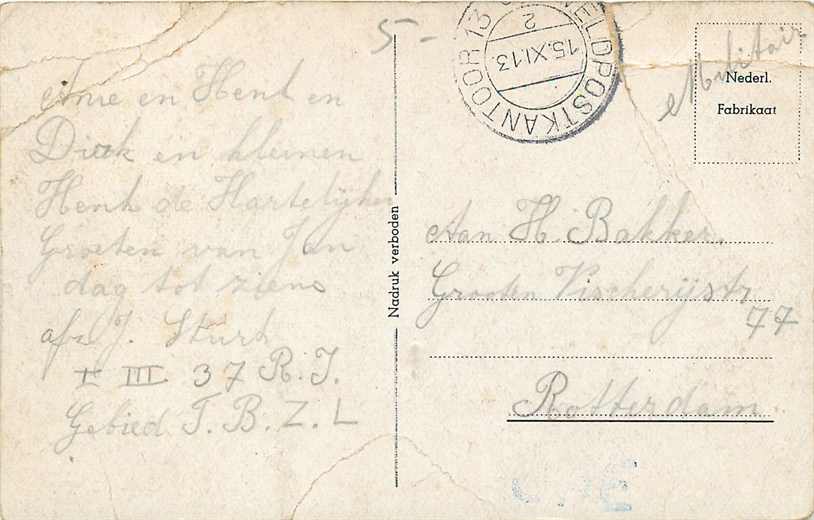 5-
VELDPOSTKANTOOR 13
2
15.XI.13
Militair
Nederl.
Fabrikaat
Anie en Henk en
Dirk en kleinen
Henk de Hartelijke
Groeten van Jan
dag tot ziens
afz J. Sturk
I III 37 R.I.
Gebied T.B.Z.L
Nadruk verboden
Aan H. Bakker.
Grooten Visscherijstr
77
Rotterdam.